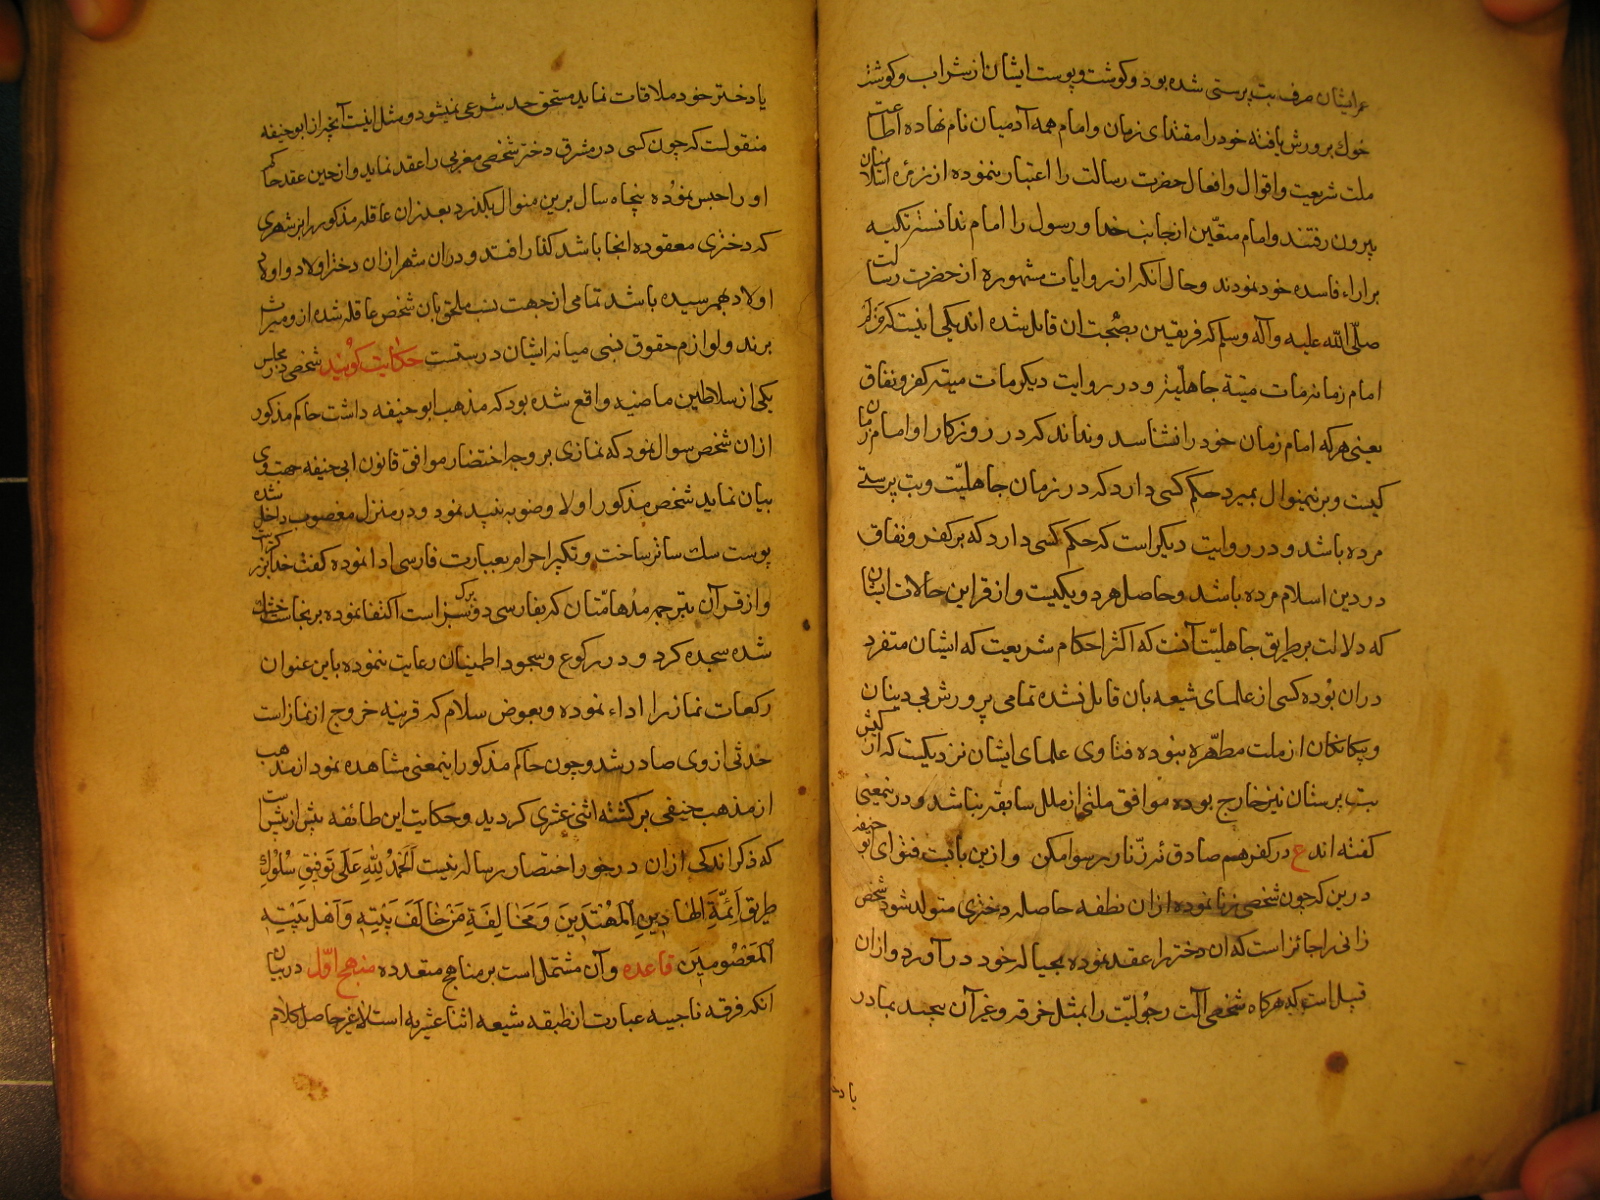 عمر ایشان صرف بت پرستی شده بود و گوشت و پوست ایشان از شراب و گوشت
خوک پرورش یافته خود را مقتدای زمان و امام همه آدمیان نام نهاده اطاعت
ملت شریعت و اقوال و افعال حضرت رسالت را اعتبار ننموده از زمره
بیرون رفتند و امام متعیّن از جانب خدا و رسول را امام ندانسته تکیه
بر اراء فاسده خود نمودند و حال آنکه از روایات مشهوره از حضرت رسالت
صلّی الله علیه وآله وسلم که فریقین بصُحبت ان قایل شده اند یکی اینست که
امام زمانه مات میتة جاهلیّة و در روایت دیگر مات میته کفر و نفاق
یعنی هر که امام زمان خود را نشناسد و نداند که در روزگار او امام زمان
کیست و برینمنوال بمیرد حکم کسی دارد که در زمان جاهلیّت و بت پرستی
مرده باشد و در روایت دیگر است که حکم کسی دارد که بر کفر و نفاق
در دین اسلام مرده باشد و حاصل هر دو یکیست و از قراین حالات ایشان
که دلالت بر طریق جاهلیّت آنست که اکثر احکام شریعت که ایشان متفرد
دران بوده کسی از علمای شیعه بان قایل نشده تمامی پرورش بی دینان
و بیکانکان از ملت مطهّره بنوده فتاوی علمای ایشان نزدیکیست که از کیش
بت پرستان نیز خارج بوده موافق ملتی از ملل سابقه نباشد و درینمعنی
گفته اند ع در کفر هم صادق نۀ زنّار رسوا مکن و ازین بابت فتوای ابو حنیفه
درین که چون شخصی زنا نموده از ان نطفه حاصله دختری متولد شود شخص
زانی را جائز است که ان دختر را عقد نموده بحباله خود در آورد و ازان
قبیل است که هرگاه شخصی آلت رجُولیّت را بمثل خرقه و غیر آن پیچید بمادر
یا دختر خود ملاقات نماید مستحق حد شرعی نمیشود و مثل اینست آنچه از ابو حنیفه
منقولست که چون کسی در مشرق دختر شخصی مغربی را عقد نماید و از حین عقد حاکم
او را حبس نموده پنجاه سال برین منوال بگذرد بعد از ان عاقله مذکور را بر شهری
که دختری معقوده انجا باشد گذار افتد و دران شهر ازان دختر اولاد و اولاد
اولاد بهم رسیده باشد تمامی از جهت نسب ملحق بان شخص عاقله شده از و میراث
برند و لوازم حقوق نبی میانه ایشان درستست حکایت گویند شخصی در مجلس
یکی از سلاطین ماضیه واقع شده بود که مذهب ابو حنیفه داشت حاکم مذکور
ازان شخص سوال نمود که نمازی بر وجه اختصار موافق قانون ابی حنیفه جهت وی
بیان نماید شخص مذکور اولا وضو به نبید نمود و در منزل مغصوب داخل شده
پوست سک ساتر ساخت و تکبیر احرام بعبارت فارسی ادا نموده گفت خدا بزرگتر است
و از قرآن بترجمه مُدهامّتان که بفارسی دو برک سبز است اکتفا نموده بر نجاست خشک
شده سجده کرد و در رکوع و سجود اطمینان رعایت ننموده باین عنوان
رکعات نماز را اداء نموده و بعوض سلام که قرینه خروج از نماز است
حدثی از وی صادر شد و چون حاکم مذکور اینمعنی مشاهده نمود از مذهب
از مذهب حنیفی برگشته اثنی عشری گردید و حکایت این طائفه بیش از بیش است
که ذکر اندکی ازان درخور اختصار رساله نیست اَلحَمدُ لِلّٰهِ عَلَی تَوفیقِ سُلُوكِ
طَریقِ اَئِمَّةِ الهَادِینِ المُهتَدِینَ وَمَخالِفَةِ مَن خَالَفَ بَیتِهِ وَ اَهلِ بَیتِهِ
المَعصُومِینَ قاعده وآن مشتمل است بر مناهج متعدده منهج اوّل در بیان
انکه فرقه ناجیه عبارت از طبقه شیعه اثنا عشریه است لا غیر حاصل کلام
یا دختر